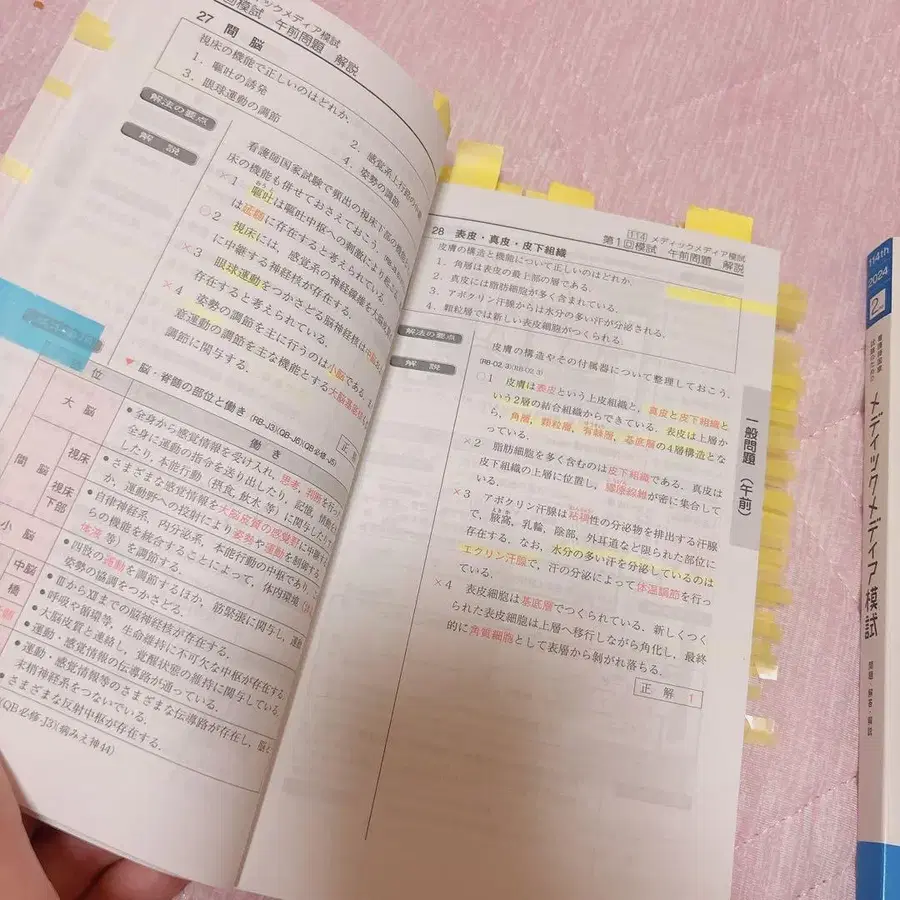 ックメディア模試
回模試 午前問題 解説
27 間 脳
視床の機能で正しいのはどれか.
1. 嘔吐の誘発
2. 感覚系上行路の
3. 眼球運動の調節
4. 姿勢の調節
解法の要点
解 説
看護師国家試験で頻出の視床下部の
床の機能も併せておさえておこう.
×1 嘔吐は嘔吐中枢への刺激により
は延髄に存在すると考えられている.
○2 視床には, 感覚系の神経線維を大脳皮質
に中継する神経核が存在する.
×3 眼球運動をつかさどる脳神経核は
存在すると考えられている.
×4 姿勢の調節を主に行うのは小脳である.
意運動の調節を主な機能とする大脳基底核も
調節に関与する.
正
▼脳・脊髄の部位と働き (RB-J3)(QB-J6)(QB必修-J5)
位
働 き
大 脳
• 全身から感覚情報を受け入れ, 思考, 判断を行
全身に運動の指令を送り出したり, 記憶, 情動
したり, 本能行動 (摂食, 飲水 等) に関与したり
間 脳
視床
• さまざまな感覚情報を大脳皮質の感覚野に中継す
, 運動野への投射により姿勢や運動を制御する
視床下部
• 自律神経系, 内分泌系, 本能行動の中枢であり, こ
らの機能を統合することによって, 体内環境
体液 等) を調節する.
小 脳
• 四肢の運動を調節するほか, 筋緊張に関与し, 運動
姿勢の協調をつかさどる.
中脳
橋
• ⅢからⅫまでの脳神経核が存在する.
• 呼吸や循環等, 生命維持に不可欠な中枢が存在する.
• 大脳皮質と連絡し, 覚醒状態の維持に関与している.
• 運動・感覚情報の伝導路が通っている.
• 運動・感覚情報等のさまざまな伝導路が存在し, 脳と
末梢神経系をつないでいる.
• さまざまな反射中枢が存在する.
(QB必修-J3)(病みえ神44)
114 メディックメディア模試
第1回模試 午前問題 解説
28 表皮・真皮・皮下組織
皮膚の構造と機能について正しいのはどれか.
1. 角層は表皮の最上部の層である.
2. 真皮には脂肪細胞が多く含まれている.
3. アポクリン汗腺からは水分の多い汗が分泌される.
4. 顆粒層では新しい表皮細胞がつくられる.
解法の要点
皮膚の構造やその付属器について整理しておこう.
解 説
○1 皮膚は表皮という上皮組織と, 真皮と皮下組織と
いう2層の結合組織からできている. 表皮は上層か
ら, 角層, 顆粒層, 有棘層, 基底層の4層構造とな
っている.
×2 脂肪細胞を多く含むのは皮下組織である. 真皮は
皮下組織の上層に位置し, 膠原線維が密に集合して
いる.
×3 アポクリン汗腺は粘稠性の分泌物を排出する汗腺
で, 腋窩, 乳輪, 陰部, 外耳道など限られた部位に
存在する. なお, 水分の多い汗を分泌しているのは
エクリン汗腺で, 汗の分泌によって体温調節を行っ
ている.
×4 表皮細胞は基底層でつくられている. 新しくつく
られた表皮細胞は上層へ移行しながら角化し, 最終
的に角質細胞として表層から剝がれ落ちる.
正 解 1
一般問題 (午前)
114th
2024
2
メディックメディア模試
問題・解答・解説